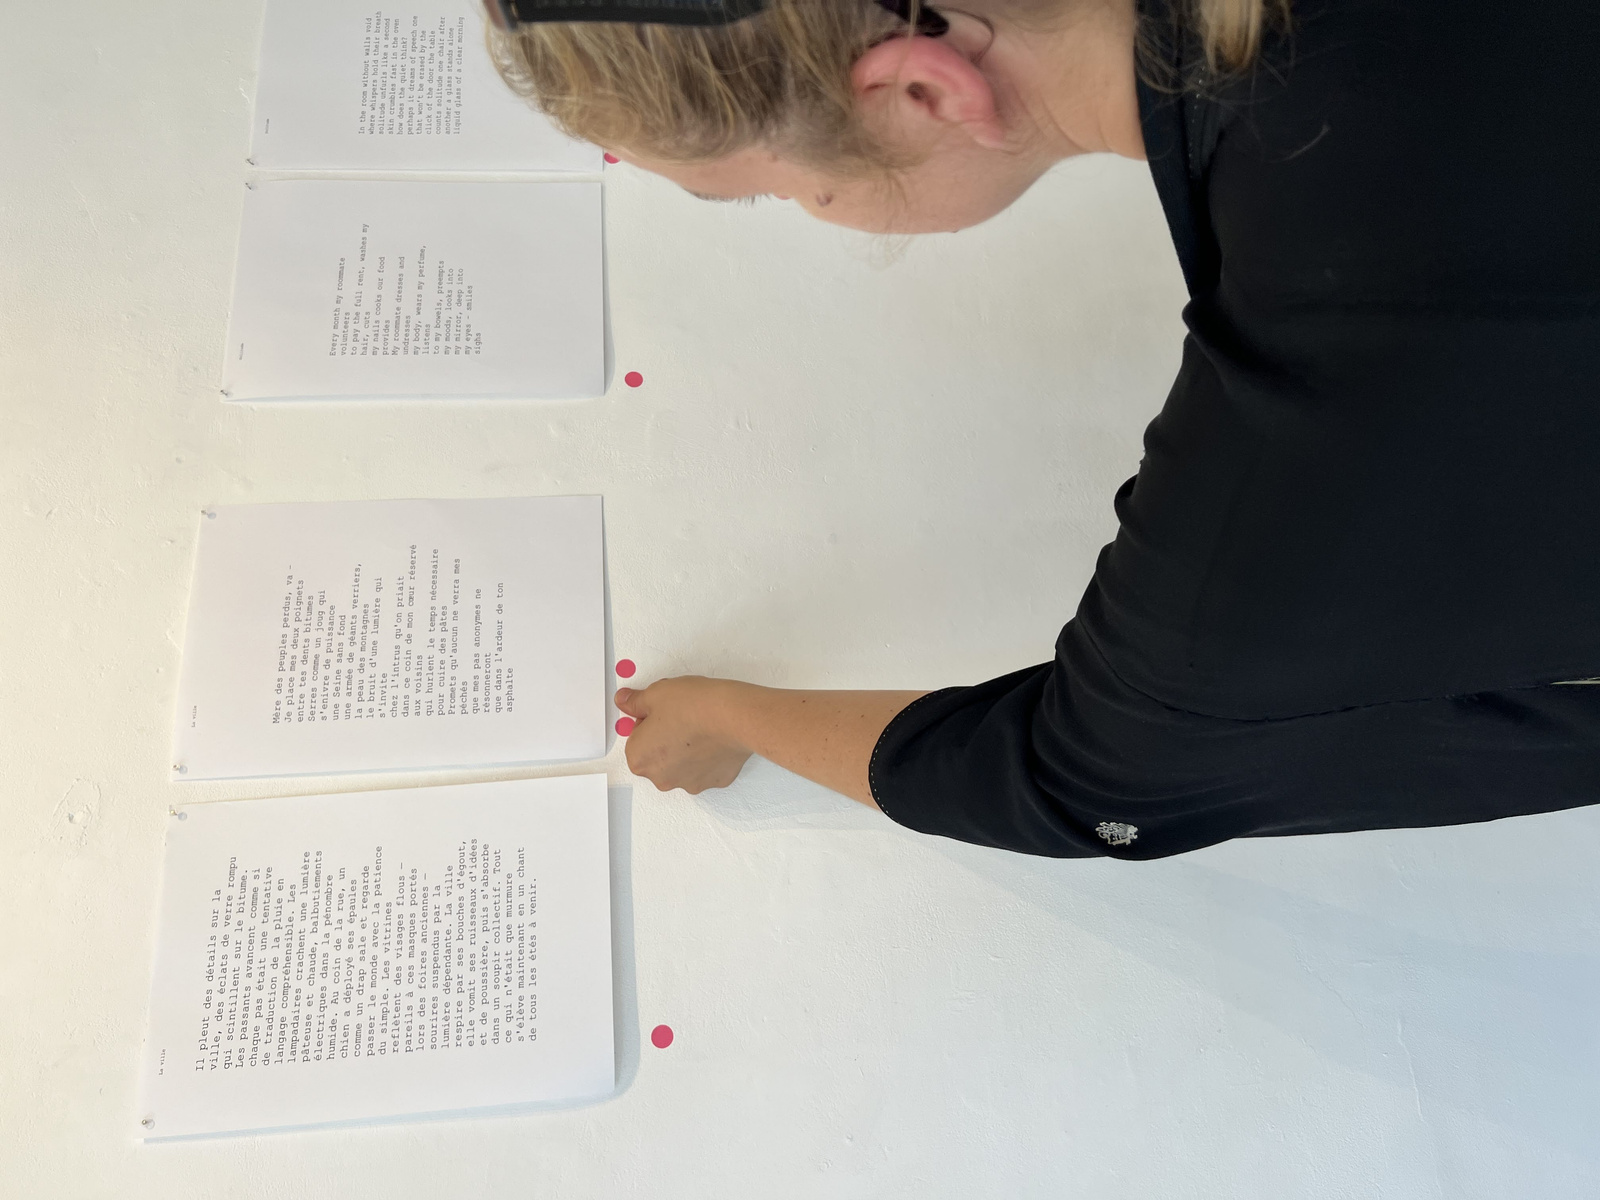 La ville
Il pleut des détails sur la
ville, des éclats de verre rompu
qui scintillent sur le bitume.
Les passants avancent comme si
chaque pas était une tentative
de traduction de la pluie en
langage compréhensible. Les
lampadaires crachent une lumière
pâteuse et chaude, balbutiements
électriques dans la pénombre
humide. Au coin de la rue, un
chien a déployé ses épaules
comme un drap sale et regarde
passer le monde avec la patience
du simple. Les vitrines
reflètent des visages flous –
pareils à ces masques portés
lors des foires anciennes –
sourires suspendus par la
lumière dépendante. La ville
respire par ses bouches d'égout,
elle vomit ses ruisseaux d'idées
et de poussière, puis s'absorbe
dans un soupir collectif. Tout
ce qui n'était que murmure
s'élève maintenant en un chant
de tous les étés à venir.
La ville
Mère des peuples perdus, va –
Je place mes deux poignets
entre tes dents bitumes
Serres comme un joug qui
s'enivre de puissance
une Seine sans fond
une armée de géants verriers,
la peau des montagnes
le bruit d'une lumière qui
s'invite
chez l'intrus qu'on priait
dans ce coin de mon cœur réservé
aux voisins
qui hurlent le temps nécessaire
pour cuire des pâtes
Promets qu'aucun ne verra mes
péchés
que mes pas anonymes ne
résonneront
que dans l'ardeur de ton
asphalte
Every month my roommate
volunteers
to pay the full rent, washes my
hair, cuts
my nails cooks our food
provides
My roommate dresses and
undresses
my body, wears my perfume,
listens
to my bowels, preempts
my moods, looks into
my mirror, deep into
my eyes – smiles
sighs
In the room without walls void
where whispers hold their breath
solitude unfurls like a second
skin crumbles fast in the oven
how does the quiet think?
perhaps it dreams of speech one
that won't be erased by the
click of the door the table
counts solitude one chair after
another a glass stands alone
liquid glass of a clear morning